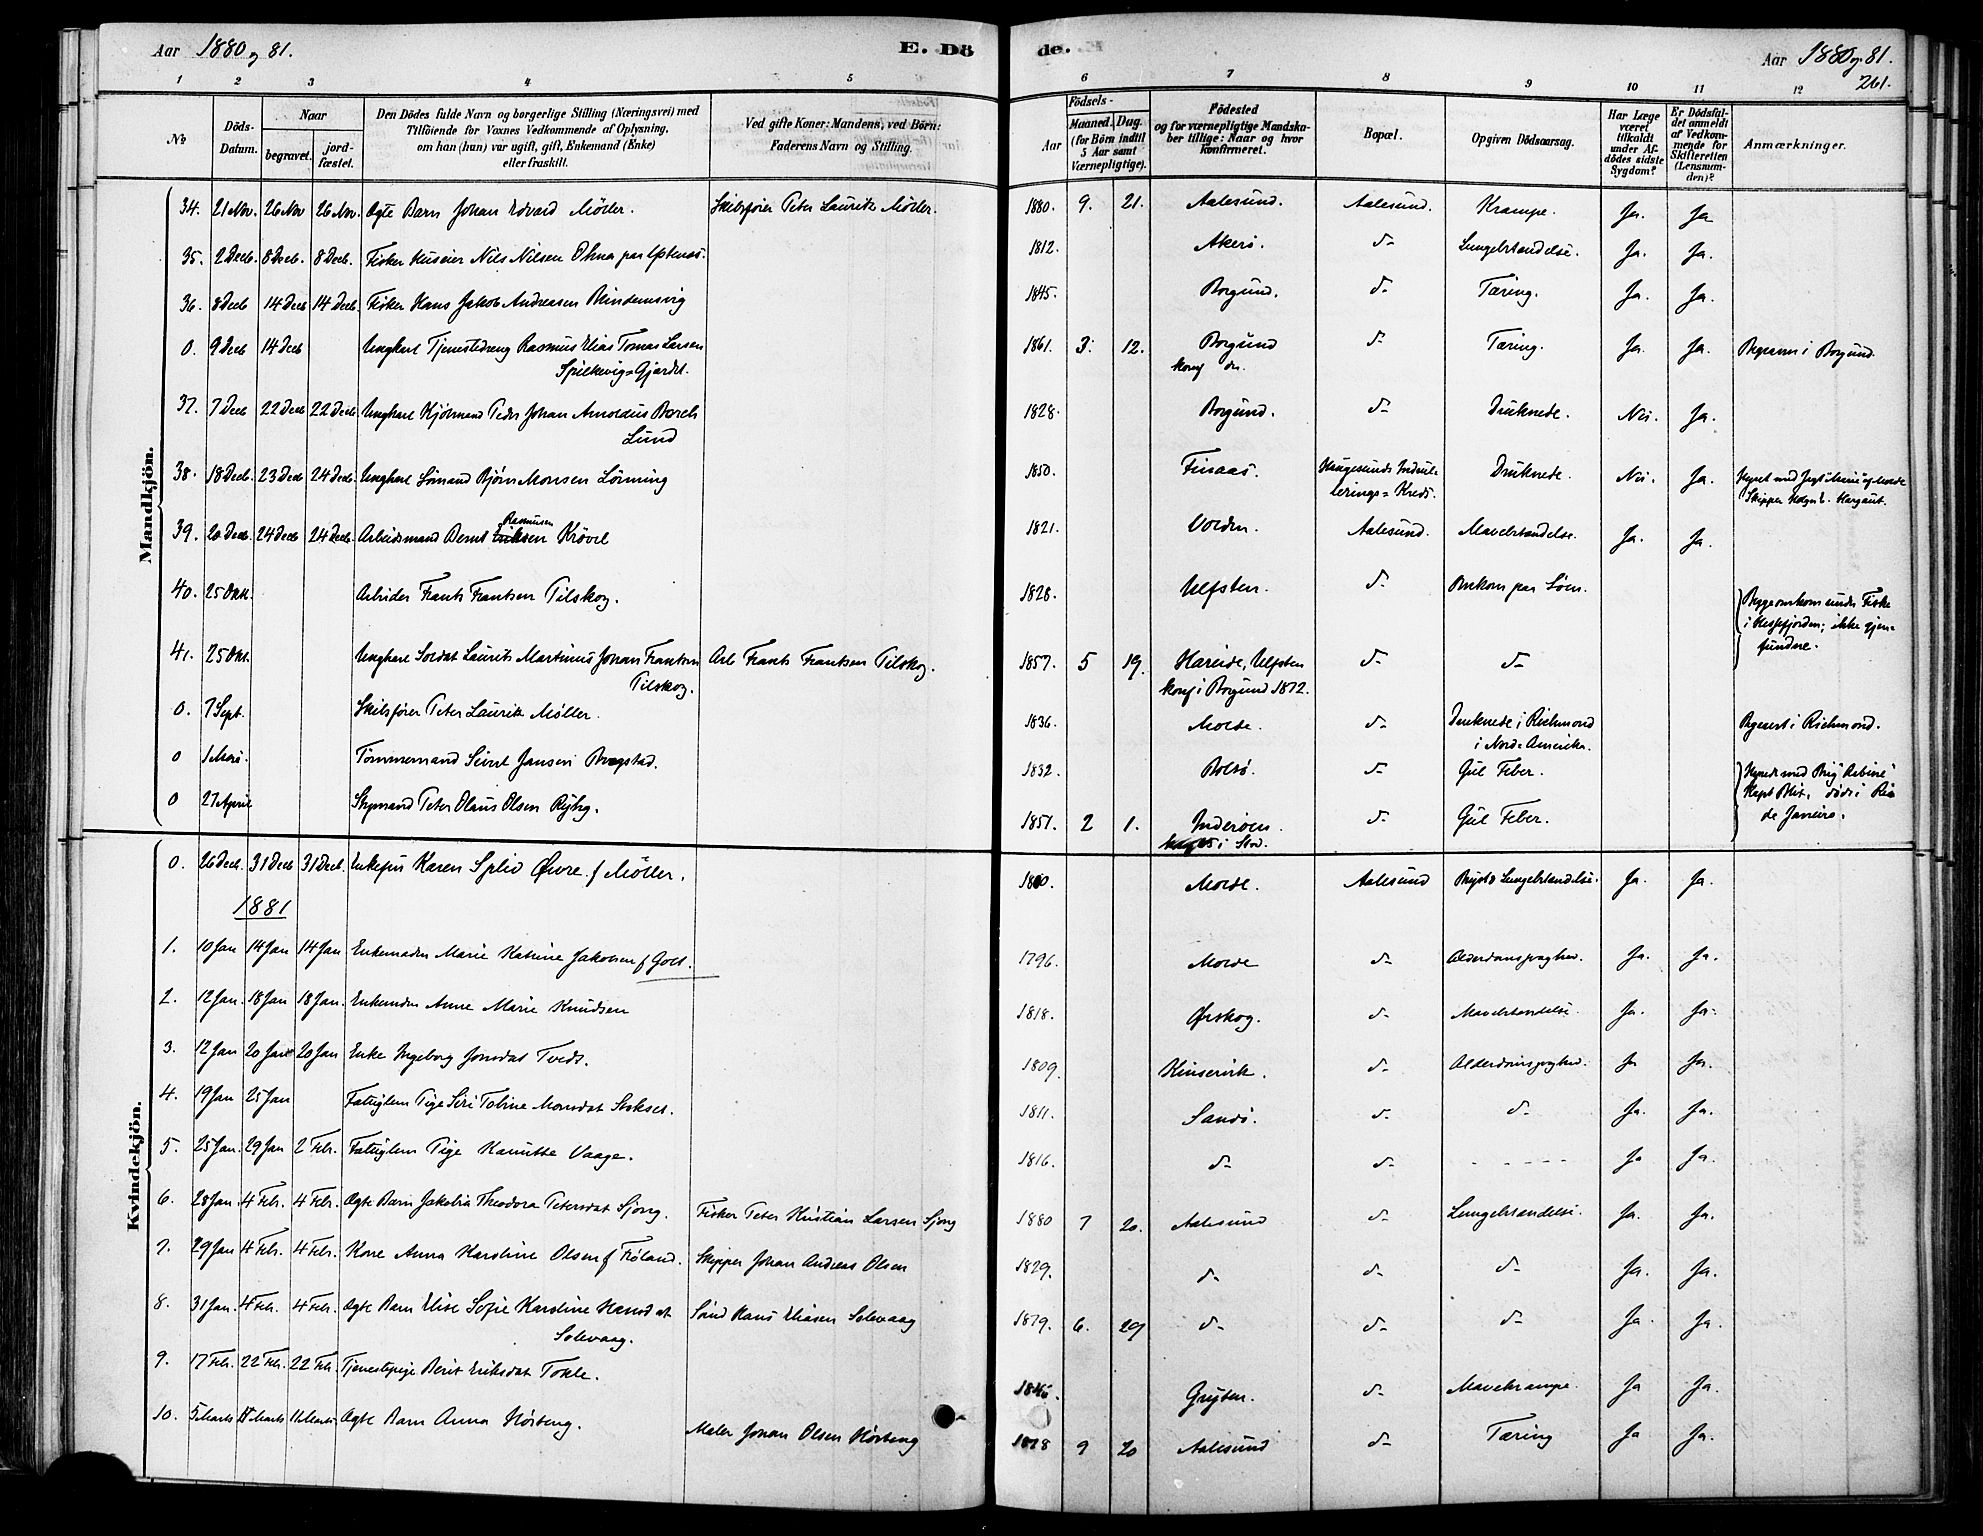 Aar 1880 og 81. E. Dö
de. Aar 1880 og 81.
261.
1 2 3 4 5 6 7 8 9 10 11 12
No Döds-Datum. Naar begravet. jordfæstet. Den Dödes fulde Navn og borgerlige Stilling (Næringsvei) med Tilföiende for Voxnes Vedkommende af Oplysning, om han (hun) var ugift, gift, Enkemand (Enke) eller fraskilt. Ved gifte Koner: Mandens, ved Börn: Faderens Navn og Stilling.
Födsels- Aar Maaned. Dag. (for Börn indtil 5 Aar samt Værnepligtige). Födested og for værnepligtige Mandskaber tillige: Naar og hvor konfirmeret. Bopæl. Opgiven Dödsaarsag. Har Læge været tilkaldt under Afdödes sidste Sygdom? Er Dödsfaldet anmeldt af Vedkommende for Skifteretten (Lensmanden)? Anmærkninger.
Mandkjön.
34. 21 Nov. 26 Nov 26 Nov. Ægte Barn Johan Edvard Møller. Skibsfører Peter Lauritz Møller. 1880. 9. 21. Aalesund. Aalesund. Krampe. Ja. Ja
35. 2 Decb. 8 Decb. 8 Decb. Fisker Huseier Nils Nilsen Ohna paa 1812. Akerö. d- Lungebetændelse. Ja. Ja.
36. 8 Decb 14 Decb 14 Decb. Fisker Hans Jakob Andreasen Blindemsvig 1845. Borgund. d- Tæring. Ja. Ja.
0. 9 Decb 14 Decb Ungkarl Tjenestedreng Rasmus Elias Tomas Larsen 1861. 3. 12. Borgund d- Tæring. Ja. Ja. Begraven i Borgund.
Spilkevig=Gjærdet. konf do.
37. 7 Decb 22 Decb 22 Decb Ungkarl Kjøbmand Peder Johan Arnoldus Barch 1828. Borgund. d- Druknede. Nei. Ja.
Lund
38. 18 Decb. 23 Decb 24 Decb. Ungkarl Sömand Bjørn Monsen Lönning 1850. Finaas. Haugesunds Indrul- Druknede. Nei. Ja.
lerings=Kreds. Skipper
39. 20 Decb. 24 Decb 24 Decb. Arbeidsmand Bernt Rasmusen Krövel 1821. Volden. Aalesund. Mavebetændelse. Ja. Ja.
40. 25 Okt. Arbeider Frants Frantsen Tilskog. 1828. Ulfsten. d- Omkom paa Söen.
Begge omkom under Fiske
i Hessefjorden; ikke gjen-
fundne.
41. 25 Okt. Ungkarl Soldat Laurits Martinus Johan Frantsen Arb Frants Frantsen Tilskog. 1857. 5 19. Hareide, Ulfsten d- d-
Tilskog. konf i Borgund 1872.
0. 7 Sept. Skibsfører Peter Lauritz Møller. 1836. Molde. d- Druknede i Richmond Begravet i Richmond.
i Nord=Amerika.
0 1 Mai. Tömmermand Sivert Jansen Bragstad. 1832. Bolsö. d- Gul Feber. Hyret med Brig
0 27 April Styrmand Peter Olaus Olsen 1851. 2 1. Inderöen. d- Gul Feber. död i Rio
de Janeiro.
Kvindekjön.
0. 26 Decb. 31 Decb 31 Decb. Enkefru Karen Splid Øvre f Möller. Molde. Aalesund Lungebetændelse. Ja. Ja.
1881
1. 10 Jan 14 Jan 14 Jan Enkemadam Marie Katrine Jakobsen f 1796. Molde d- Alderdomssvaghed. Ja. Ja.
2. 12 Jan 18 Jan 18 Jan. Enkemadm Anne Marie Knudsen 1818. Ørskog. d- Mavebetændelse. Ja. Ja.
3. 12 Jan 20 Jan 20 Jan Enke Ingeborg Jonsdat Tvedt. 1809. Kinservik. d- Alderdomssvaghed. Ja Ja.
4. 19 Jan 25 Jan Fattiglem Pige Siri Toline Monsdat 1811. Sandö. d- d- Ja. Ja.
5. 25 Jan. 29 Jan 2 Febr. Fattiglem Pige Vaage. 1816. d- d- - - - - - Ja Ja.
6. 28 Jan. 4 Febr. 4 Febr. Ægte Barn Jakobia Theodora Petersdat Sjong. Fisker Peter Kristian Larsen Sjong 1880 7 20. Aalesund d- Lungebetændelse. Ja. Ja.
7. 29 Jan 4 Febr. 4 Febr. Kone Anna Karoline Olsen f Fröland. Skipper Johan Andreas Olsen 1829. d- d- d- Ja. Ja.
8. 31 Jan. 4 Febr. 4 Febr. Ægte Barn Elise Sofie Karoline Hansdat Hans Eliasen Solevaag 1879. 6. 29 d- d- d- Ja. Ja.
Solevaag.
9. 17 Febr. 22 Febr. 22 Febr. Tjenestepige Berit Eriksdat Tokle. Grytten. d- Mavekrampe. Ja Ja.
10. 5 Marts 11 Marts 11 Marts Ægte Barn Anna Maler Johan Olsen 1878 9 20 Aalesund d- Tæring Ja Ja.